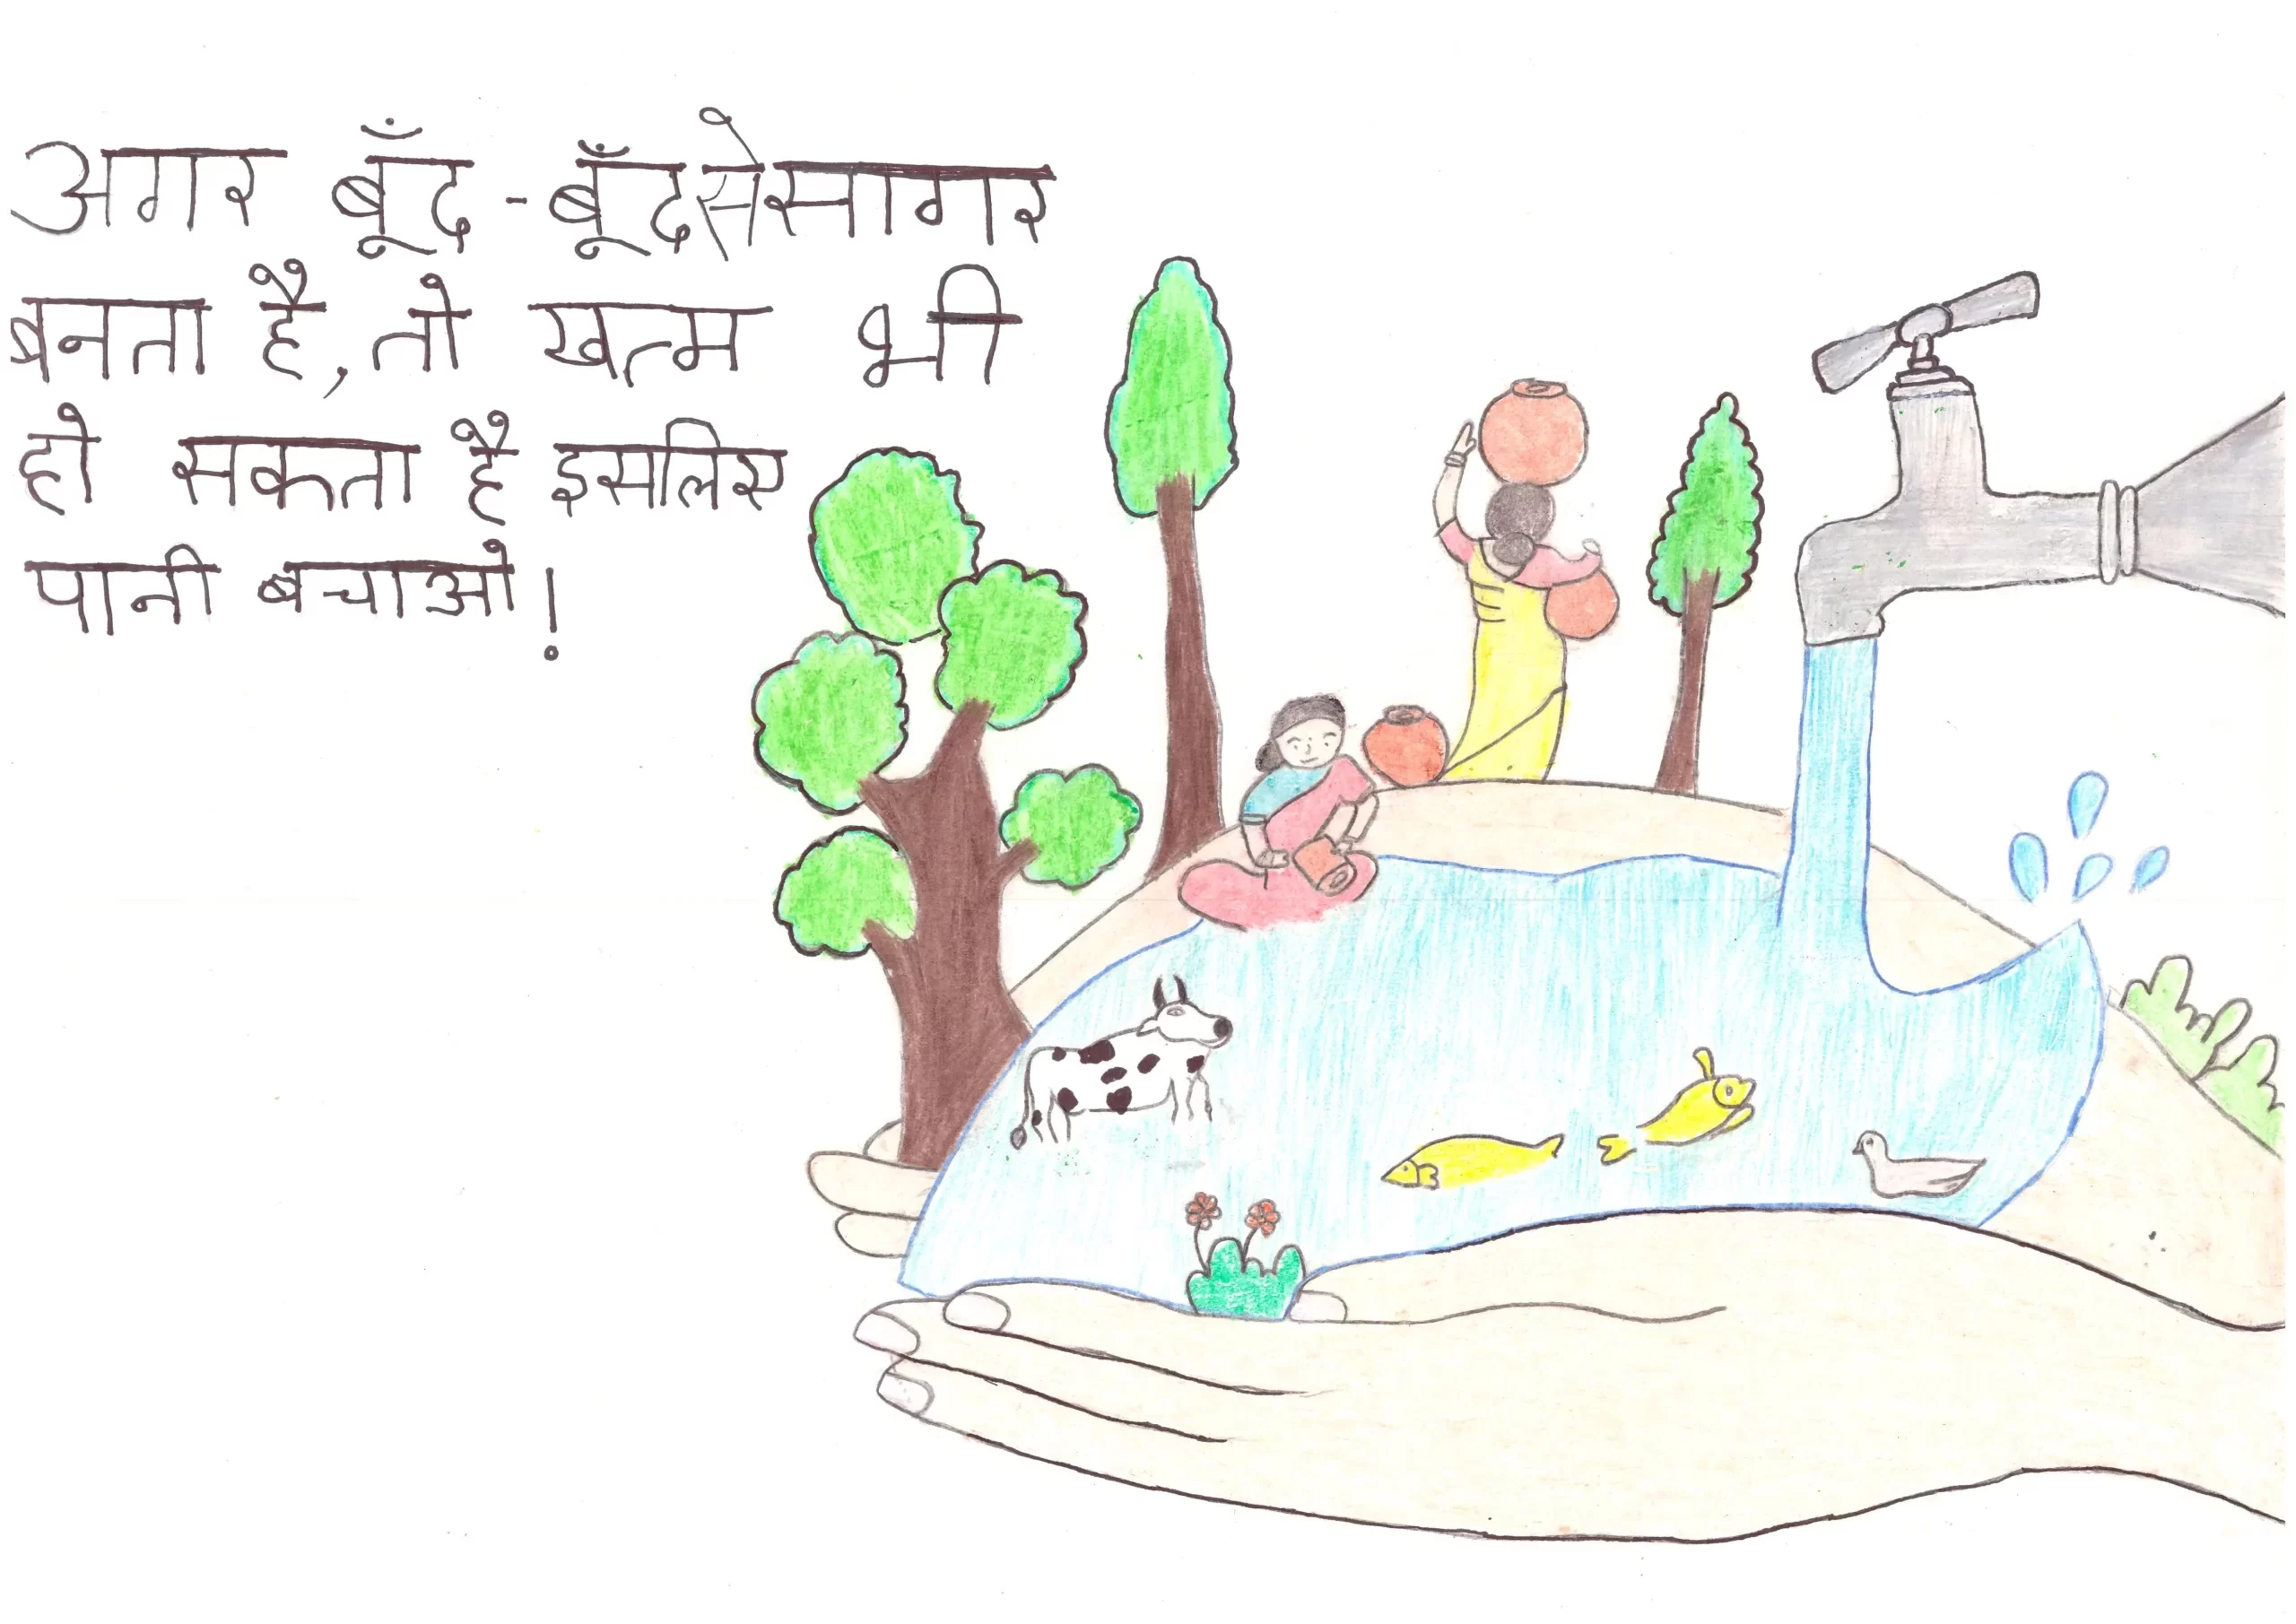 अगर बूँद-बूँद से सागर
बनता है, तो खत्म भी
हो सकता है इसलिए
पानी बचाओ!